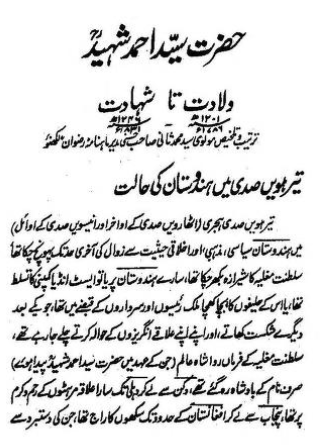 حضرت سیّد احمد شہیدؒ
ولادت تا شہادت
۱۲۰۱ھ ۱۲۴۶ھ
۱۷۸۶ء ۱۸۳۱ء
ترتیب و تلخیص مولوی سید محمد ثانی صاحب حسنی، مدیر ماہنامہ رضوان لکھنؤ
تیرہویں صدی میں ہندوستان کی حالت
تیرہویں صدی ہجری (اٹھارویں صدی کے اواخر اور انیسویں صدی کے اوائل)
میں ہندوستان سیاسی، مذہبی، اور اخلاقی حیثیت سے زوال کی آخری حد تک پہونچ چکا تھا
سلطنت مغلیہ کا شیرازہ بکھر چکا تھا، سارے ہندوستان پر یا تو ایسٹ انڈیا کمپنی کا تسلط
تھا، یا اس کے حلیفوں کا، بچا کھچا ملک رئیسوں اور سرداروں کے قبضے میں تھا، جو یکے بعد
دیگرے شکست کھاتے، اور اپنے اپنے علاقے انگریزوں کے حوالہ کرتے چلے جارہے تھے،
سلطنت مغلیہ کے فرماں روا شاہ عالم (جن کے عہد میں حضرت سید احمد شہیدؒ پیدا ہوئے)
صرف نام کے بادشاہ رہ گئے تھے، دکن سے لے کر دہلی تک سارا علاقہ مرہٹوں کے رحم و کرم
پر تھا، پنجاب سے لے کر افغانستان کے حدود تک سکھوں کا راج تھا، جن کی دستبرد سے